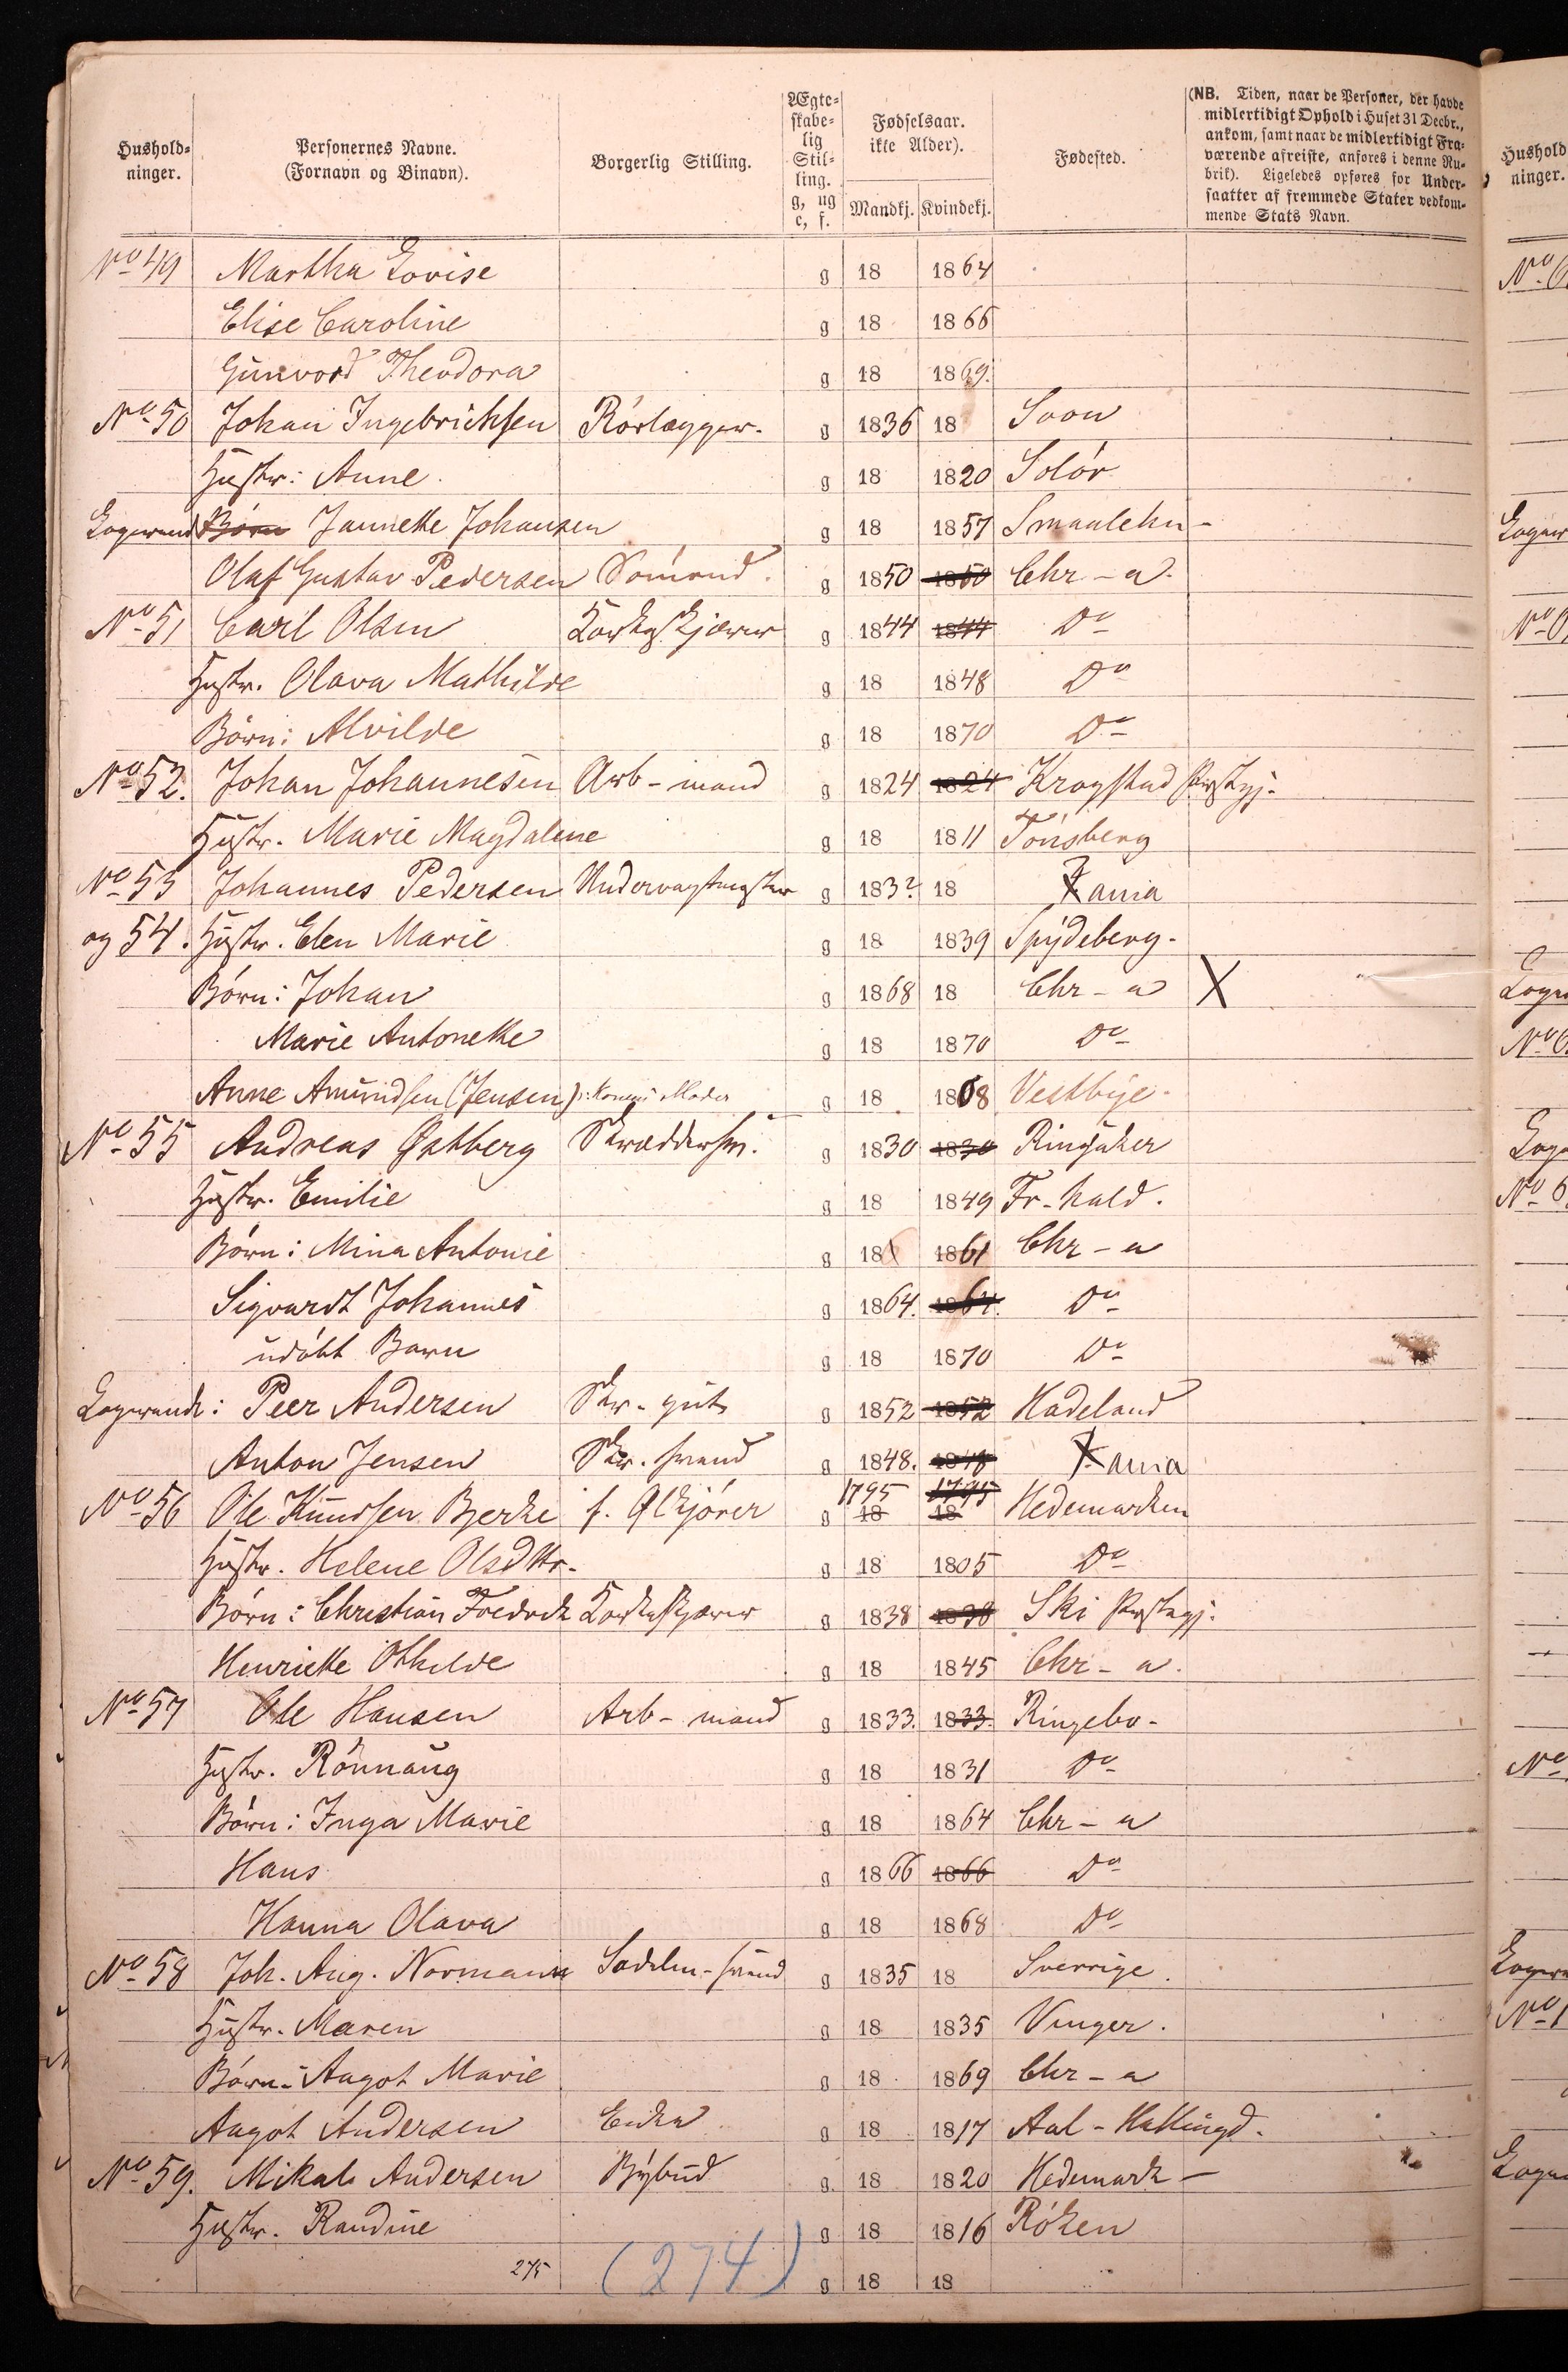 Hushold-
ninger.
Personernes Navne.
(Fornavn og Binavn).
Borgerlig Stilling.
Ægte-
skabe-
lig
Stil-
ling.
g, ug
e, f.
Fødselsaar.
ikke Alder).
Mandkj. Kvindekj.
Fødested.
(NB. Tiden, naar de Personer, der havde
midlertidigt Ophold i Huset 31 Decbr.,
ankom, samt naar de midlertidigt Fra-
værende afreiste, anføres i denne Ru-
brik). Ligeledes opføres for Under-
saatter af fremmede Stater vedkom-
mende Stats Navn.
No 49 Martha Lovise g 18 1864
Elise Caroline g 18 1866
Gunvord Theodora g 18 1869.
No 50 Johan Ingebrichsen Rörlægger. g 1836 18 Soon
Hustr: Anne. g 18 1820 Solör
Logerende Börn Jannette Johansen g 18 1857 Smaalehn-
Olaf Gustav Pedersen Sömand. g 1850 1850 Chr-a.
No 51 Carl Olsen Korkeskjærer g 1844 1844 Do
Hustr. Olava Mathilde g 18 1848 Do
Börn: Alvilde g 18 1870 Do
No 52. Johan Johannesen Arb-mand g 1824 1824 Krogstad Prstgj.
Hustr. Marie Magdalene g 18 1811 Tönsberg
No 53 Johannes Pedersen g 183? 18 Xania
og 54. Hustr. Elen Marie g 18 1839 Spydeberg.
Börn: Johan g 1868 18 Chr-a X
Marie Antonette g 18 1870 Do
Anne Amundsen (Jensen) Konens Moder g 18 1808 Vestbye.
No 55 Andreas Østberg Skræddersv. g 1830 1830 Ringsaker
Hustr. Emilie g 18 1849 Fr-hald.
Börn: Mina Antonie g 18 1861 Chr-a
Sigvardt Johannes g 1864. 1864. Do
udöbt Barn g 18 1870 Do
Logerende: Peer Andersen Skr-gut g 1852 1852 Hadeland
Anton Jensen Skr. svend g 1848. 1848 Xania
No 56 Ole Knudsen Bjerke f. Vkjörer g 1795 18 1795 18 Hedemarken
Hustr. Helene Olsdttr. g 18 1805 Do
Börn: Christian Fredrik Korkeskjærer g 1838 1838 Ski Prstegj.
Henriette Othilde g 18 1845 Chr-a.
No 57 Ole Hansen Arb-mand g 1833. 1833. Ringebo-
Hustr. Rönnaug g 18 1831 Do
Börn: Inga Marie g 18 1864 Chr-a
Hans g 1866 1866 Do
Hanna Olava g 18 1868 Do
No 58 Joh. Aug. Normann Sadelm-svend g 1835 18 Sverrige.
Hustr. Maren g 18 1835 Vinger.
Börn: Aagot Marie g 18 1869 Chr-a
Aagot Andersen Enke g 18 1817 Aal-Hallingd.
No 59. Mikal Andersen Bybud g. 18 1820 Hedemark-
Hustr. Randine g 18 1816 Röken
275 (274) g 18 18
Hushold
ninger.